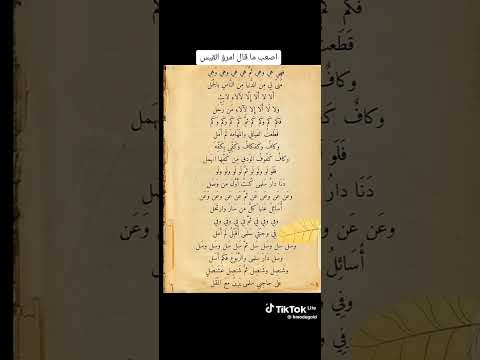 اصعب ما قال امرؤ القيس
فَهِي هِي وهِي ثُمَّ هِي هِي وهي وَهِي
مُنىً لِي مِنَ الدُّنيا مِنَ النَّاسِ بالجُمَل
أَلا لا أَلا إِلَّا لآلاءِ لابِثٍ
ولا لا أَلا إِلا لآلاءِ مَن رَحَل
فكَم كَم وكَم كَم ثُمَّ كَم كَم وكَم وَكَم
قَطَعتُ الفَيافِي والمَهَامِهَ لَم أَمَل
وكافٌ وكَفكافٌ وكَفِّي بِكَفِّهَا
وكافٌ كَفُوفُ الوَدقِ مِن كَفِّها انهَمل
فَلَو لَو ولَو لَو ثُمَّ لَو لَو ولَو ولَو
دَنَا دارُ سَلمى كُنتُ أَوَّلَ مَن وَصَل
وعَن عَن وعَن عَن ثُمَّ عَن عَن وعَن وَعَن
أُسَائِلُ عَنها كلَّ مَن سَارَ وارتَحَل
وفِي وفِي فِي ثُمَّ فِي فِي وفِي وفِي
فِي وجنَتَي سَلمَى أُقَبِّلُ لَم أَمَل
وسَل سَل وسَل سَل ثُمَّ سَل سَل وسَل وسَل
وسَل دَارَ سَلمى والرَّبُوعَ فكَم أَسَل
وشَنصِل وشَنصِل ثُمَّ شَنصِل عَشَنصَلٍ
على حاجِبي سَلمى يَزِينُ مَعَ المُقَل
فكم كم
قَطَعتُ
وكافٌ
وكافٌ
فَلَو
دَنَا دا
وعَن عَن
وَعَن
أُسَائِلُ
وفِي
فِي
TikTok Lite